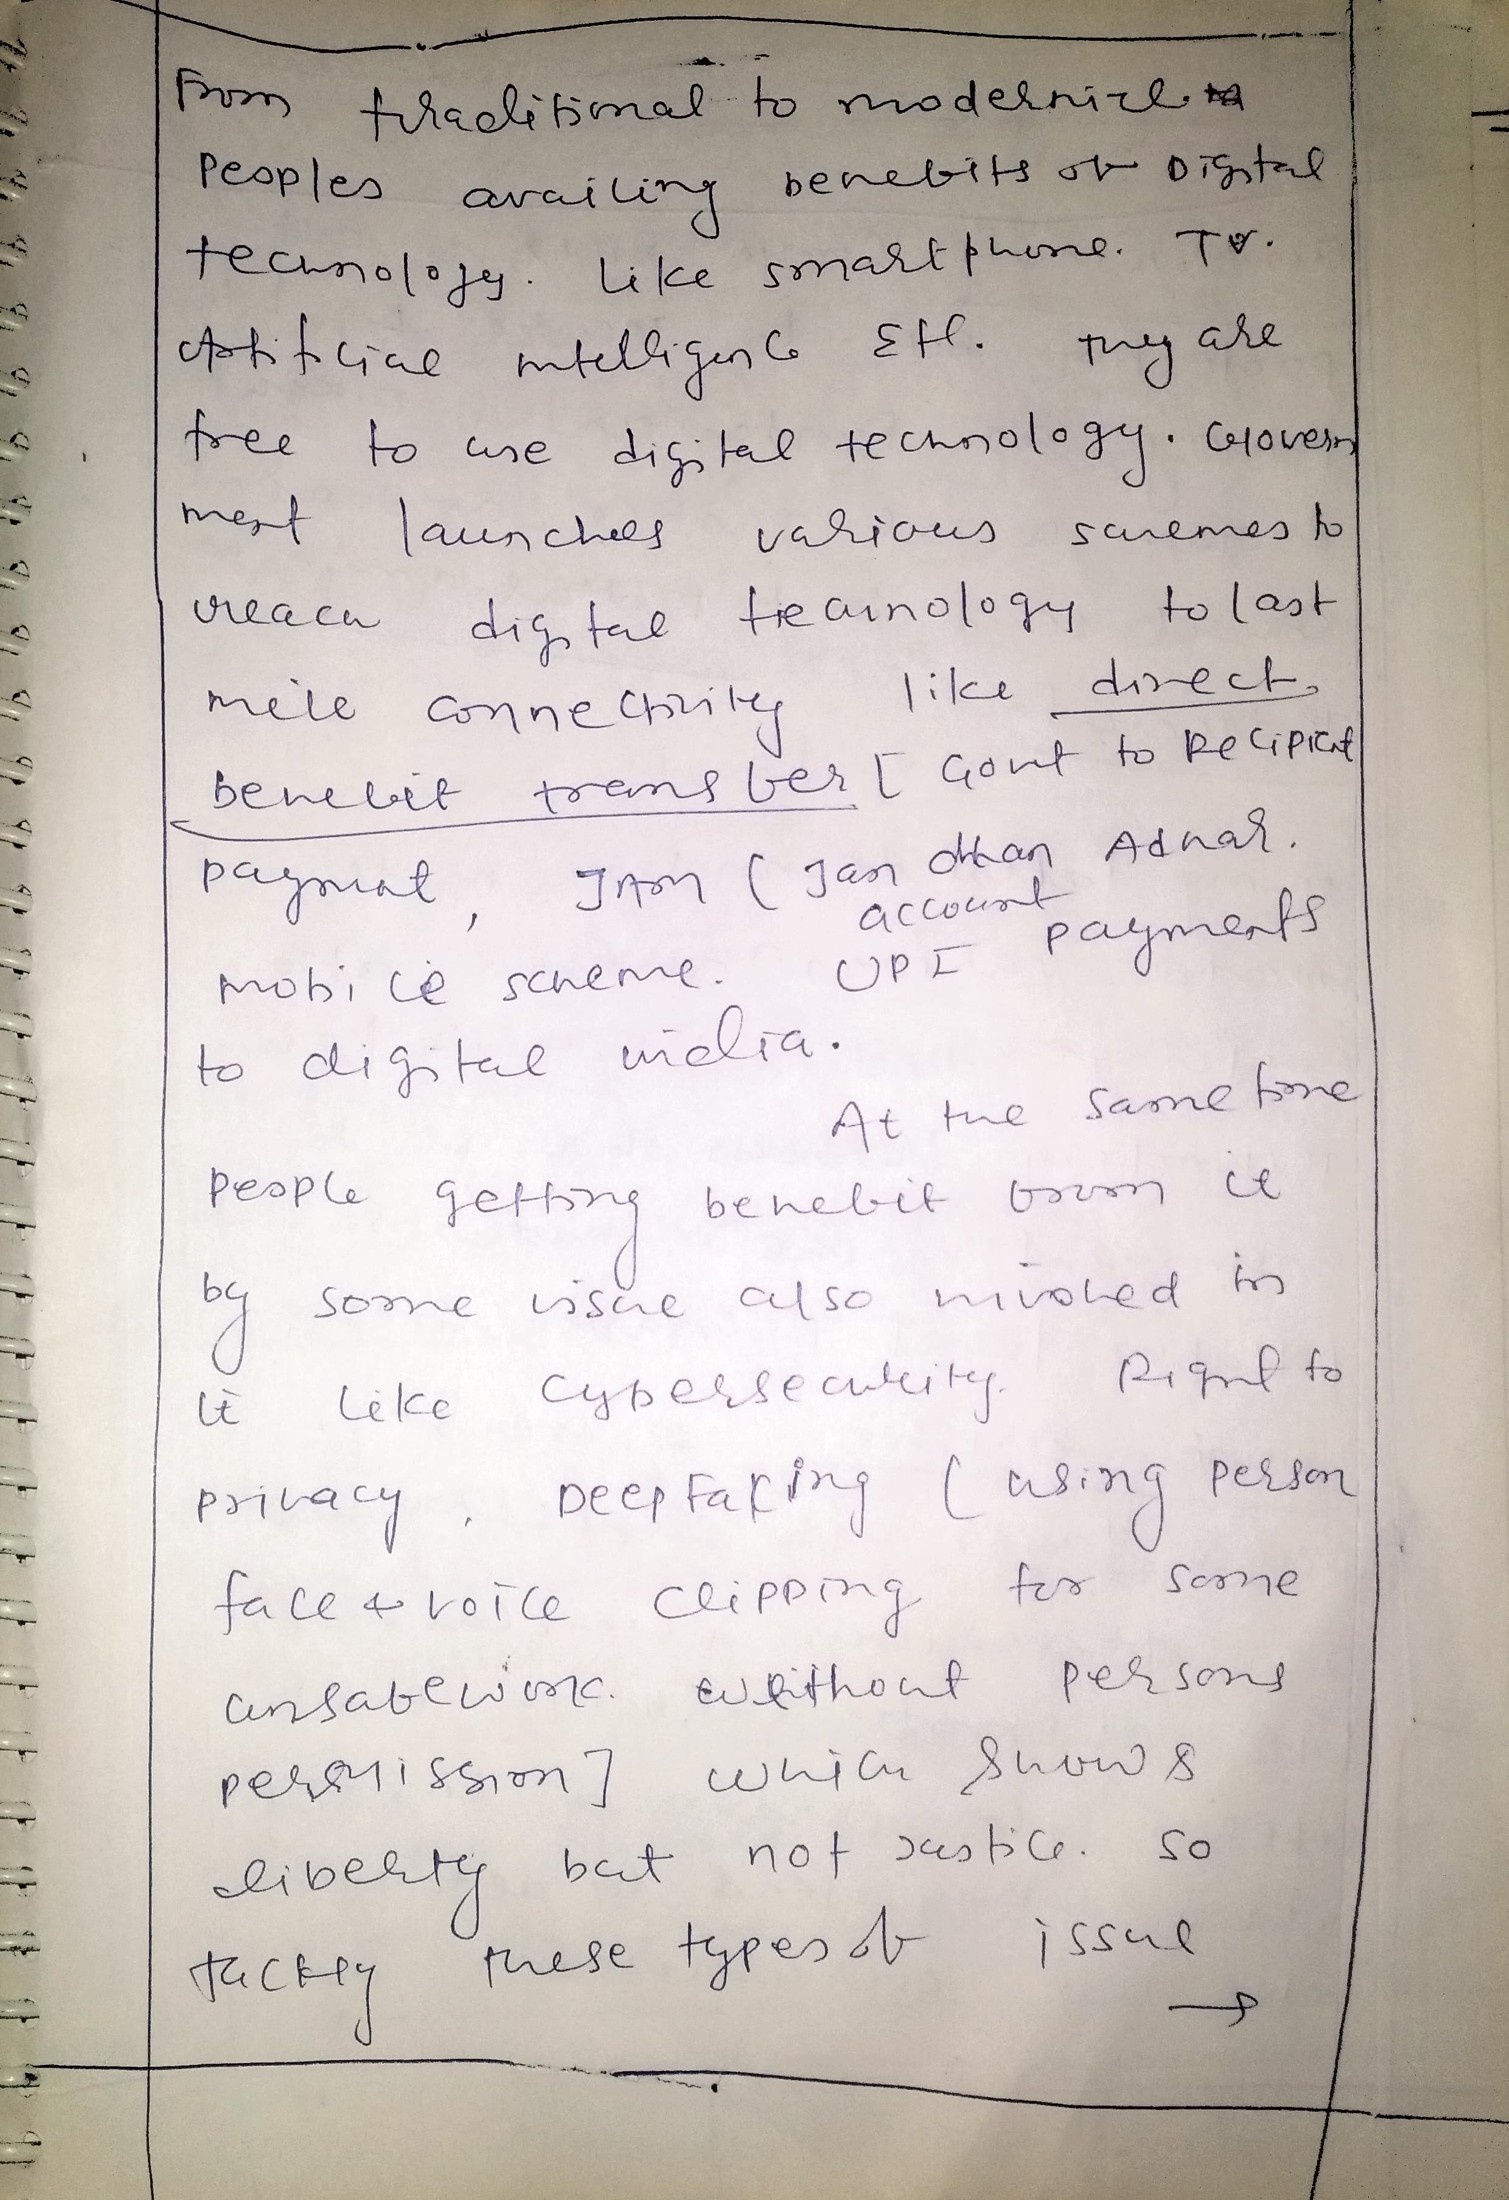 From traditional to modernize
Peoples availing benefits of Digital
technology. Like smartphone. TV.
Artificial intelligence Etc. They are
free to use digital technology. Govern
ment launches various schemes to
reach digital technology to last
mile connectivity like direct
benefit transfer [ Govt to Recipient
payment, JAM ( Jan dhan Adhar.
account
mobile scheme. UPI payments
to digital india.
At the same time
People getting benefit from it
by some issue also involved in
it like cybersecurity. Right to
privacy, DeepFaking ( using person
face & voice clipping for some
unsafework. without persons
permission] which shows
liberty but not Justice. so
tackly these types of issue
→